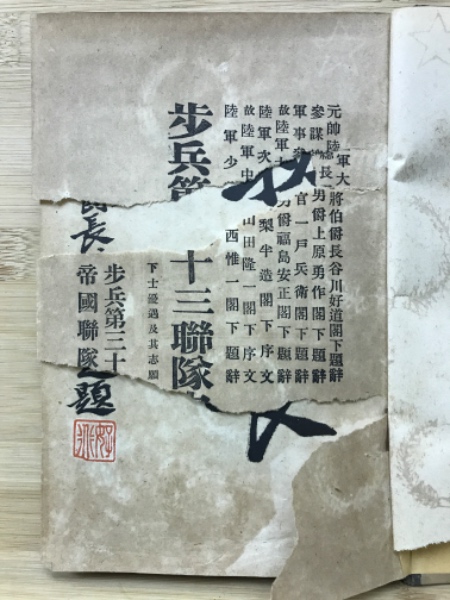 元帥陸軍大將伯爵長谷川好道閣下題辭
參謀總長男爵上原勇作閣下題辭
軍事 官一戶兵衛閣下題辭
故陸軍 男爵福島安正閣下題辭
陸軍次 梨半造閣下序文
故陸軍中 山田隆一閣下序文
陸軍少 西惟一閣下題辭
步兵第 十三聯隊
下士優遇及其志願
步兵第三十
帝國聯隊
長
題